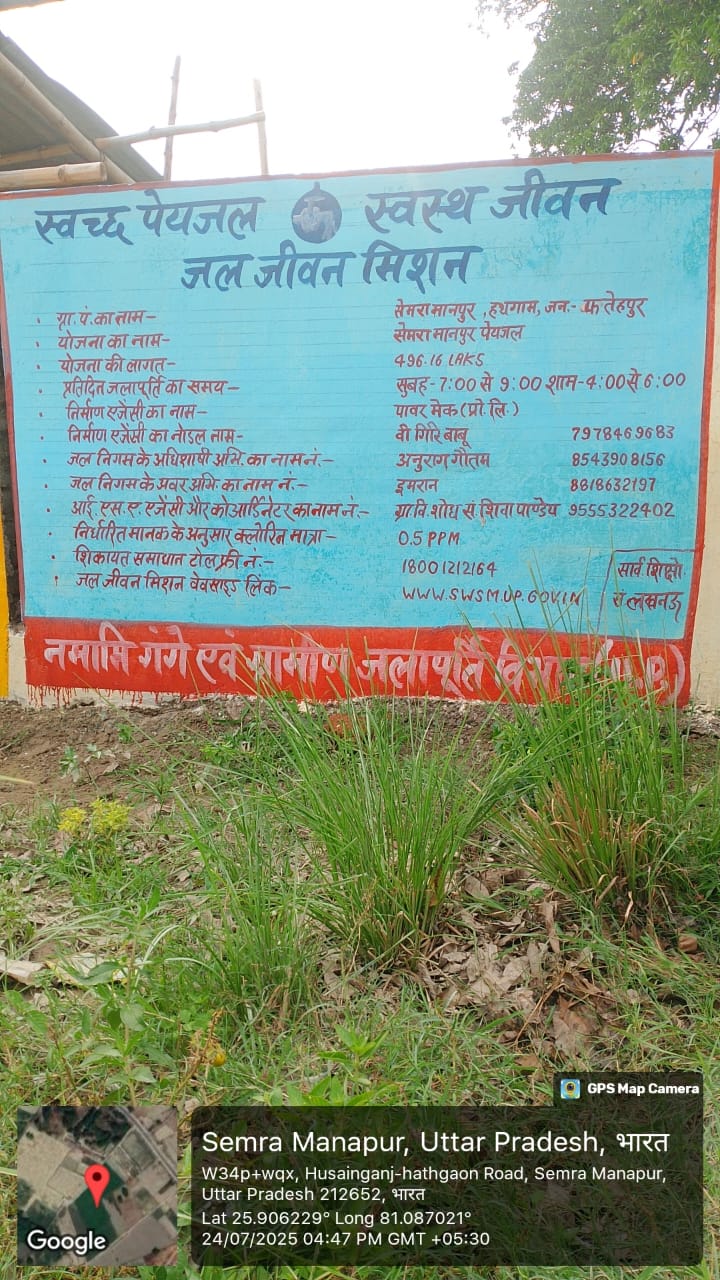 स्वच्छ पेयजल स्वस्थ जीवन
जल जीवन मिशन
ग्रा. पं. का नाम– सेमरा मानपुर , हथगाम, जन.- फतेहपुर
योजना का नाम– सेमरा मानपुर पेयजल
योजना की लागत– 496.16 LAKS
प्रतिदिन जलापूर्ति का समय– सुबह-7:00 से 9:00 शाम-4:00 से 6:00
निर्माण एजेंसी का नाम– पावर मेक (प्रो. लि.)
निर्माण एजेंसी का नोडल नाम– वी गिरि बाबू 7978469683
जल निगम के अधिशाषी अभि. का नाम नं.– अनुराग गौतम 8543908156
जल निगम के अवर अभि. का नाम नं.– इमरान 8818632197
आई. एस. ए. एजेंसी और कोआर्डिनेटर का नाम नं.– ग्रा वि शोध सं. शिवा पाण्डेय 9555322402
निर्धारित मानक के अनुसार क्लोरिन मात्रा– 0.5 PPM
शिकायत समाधान टोल फ्री नं.– 18001212164
जल जीवन मिशन वेवसाइड लिंक– WWW.SWSM.UP.GOV.IN
सार्व शिक्षो
सं लखनऊ
नमामि गंगे एवं ग्रामीण जलापूर्ति
GPS Map Camera
Semra Manapur, Uttar Pradesh, भारत
W34p+wqx, Husainganj-hathgaon Road, Semra Manapur,
Uttar Pradesh 212652, भारत
Lat 25.906229° Long 81.087021°
24/07/2025 04:47 PM GMT +05:30
Google